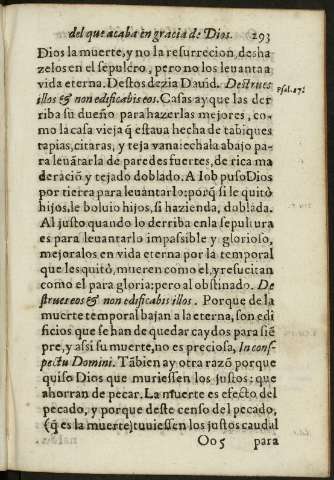 del que acaba en gracia de Dios. 293
Dios la muerte, y no la resurrecion, desha
zelos en el sepulcro, pero no los leuanta a
vida eterna. Destos dezia Dauid. Destrues
illos & non edificabis eos. Casas ay que las der
riba su dueño para hazerlas mejores, co-
mo la casa vieja q̃ estaua hecha de tabiques
tapias, citaras, y teja vana: echala abajo pa-
ra leuãtarla de paredes fuertes, de rica ma
deraciõ y tejado doblado. A Iob puso Dios
por tierra para leuantarlo: porq̃ si le quitò
hijos, le boluio hijos, si hazienda, doblada.
Al justo quando lo derriba en la sepultura
es para leuantarlo impassible y glorioso,
mejoralos en vida eterna por la temporal
que les quitò, mueren como el, y resucitan
como el para gloria: pero al obstinado. De
strues eos & non edificabis illos. Porque de la
muerte temporal bajan a la eterna, son edi
ficios que se han de quedar caydos para siẽ
pre, y assi su muerte, no es preciosa, In consp-
pectu Domini. Tãbien ay otra razõ porque
quiso Dios que muriessen los justos: que
ahorran de pecar. La muerte es efecto del
pecado, y porque deste censo del pecado,
(q̃ es la muerte) tuuiessen los justos caudal
Oo 5 para
Psal. 27.